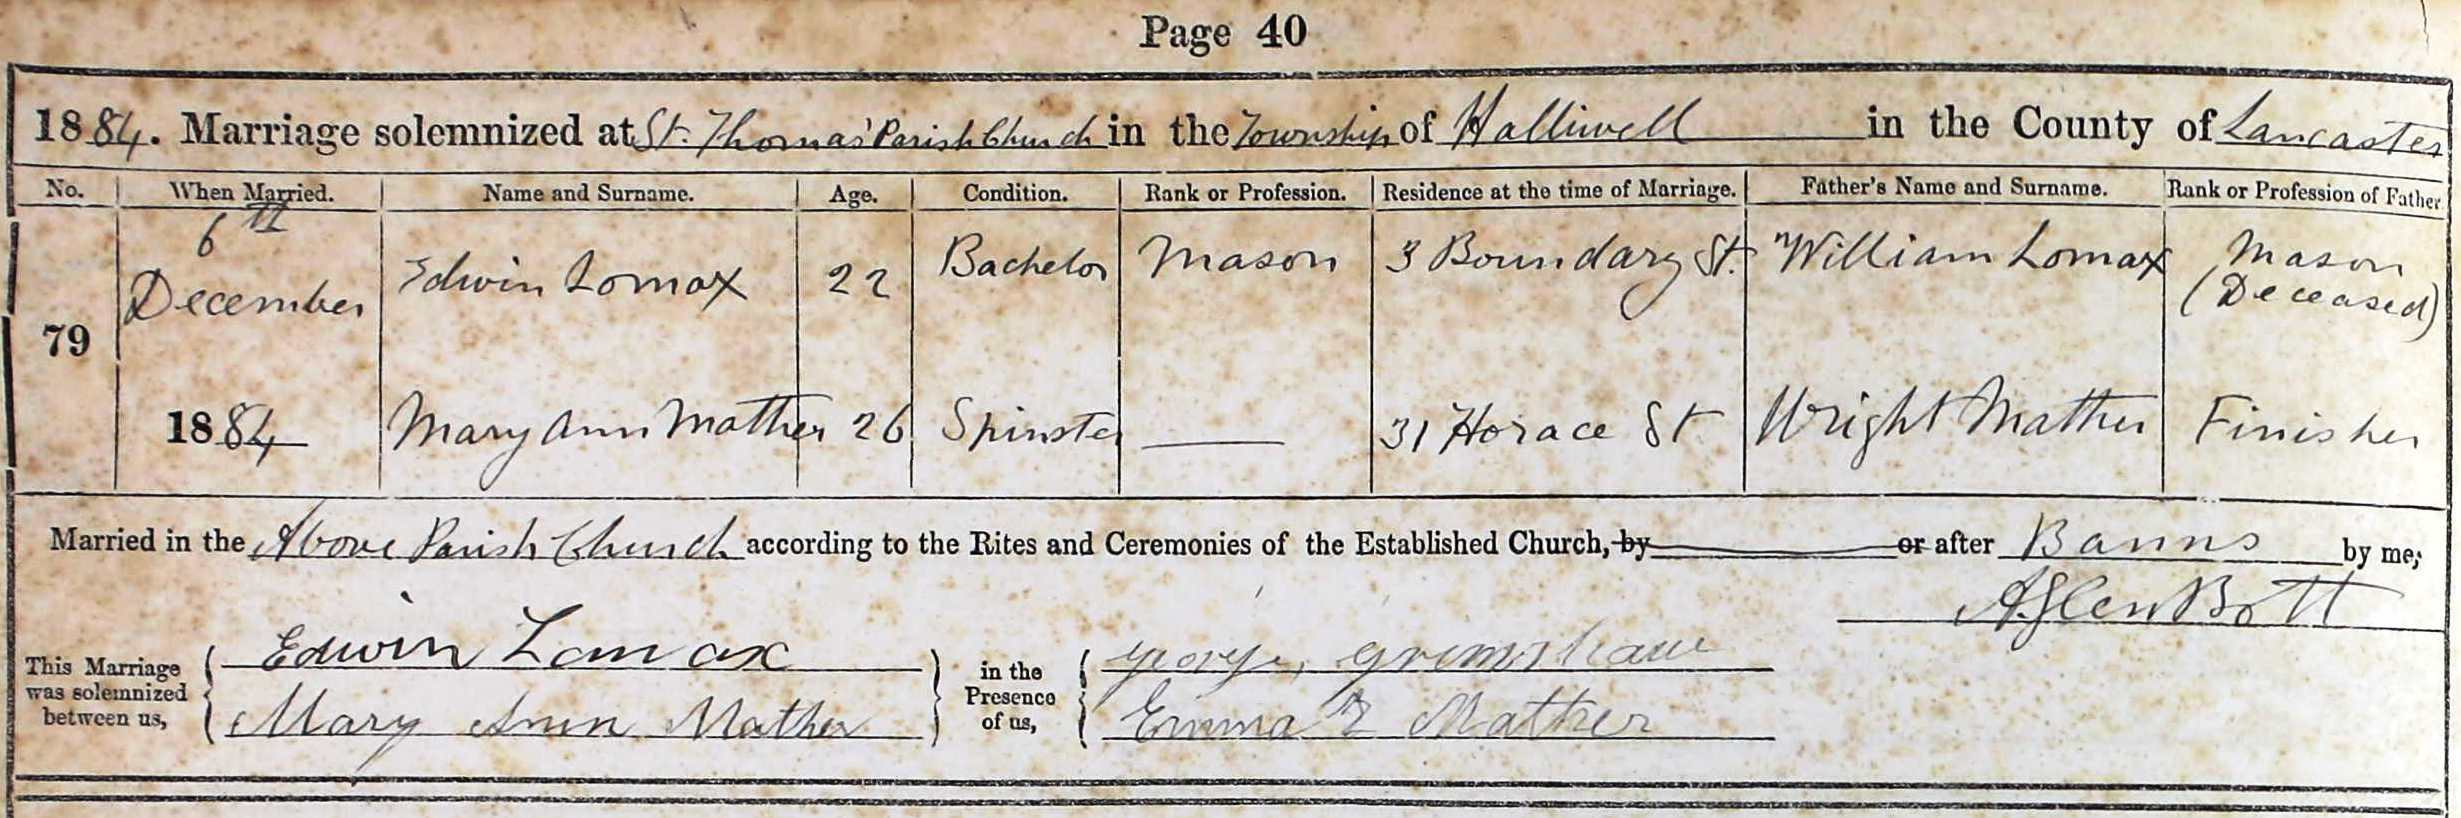 Page 40
1884. Marriage solemnized at St. Thomas' Parish Church in the Township of Halliwell in the County of Lancaster
No. When Married. Name and Surname. Age. Condition. Rank or Profession. Residence at the time of Marriage. Father's Name and Surname. Rank or Profession of Father.
79 6th December 1884
Edwin Lomax 22 Bachelor Mason 3 Boundary St. William Lomax Mason (Deceased)
Mary Ann Mather 26 Spinster 31 Horace St Wright Mather Finisher
Married in the Above Parish Church according to the Rites and Ceremonies of the Established Church, by or after Banns by me,
Bott
This Marriage was solemnized between us, Edwin Lomax Mary Ann Mather in the Presence of us, George Grimshaw Emma Mather